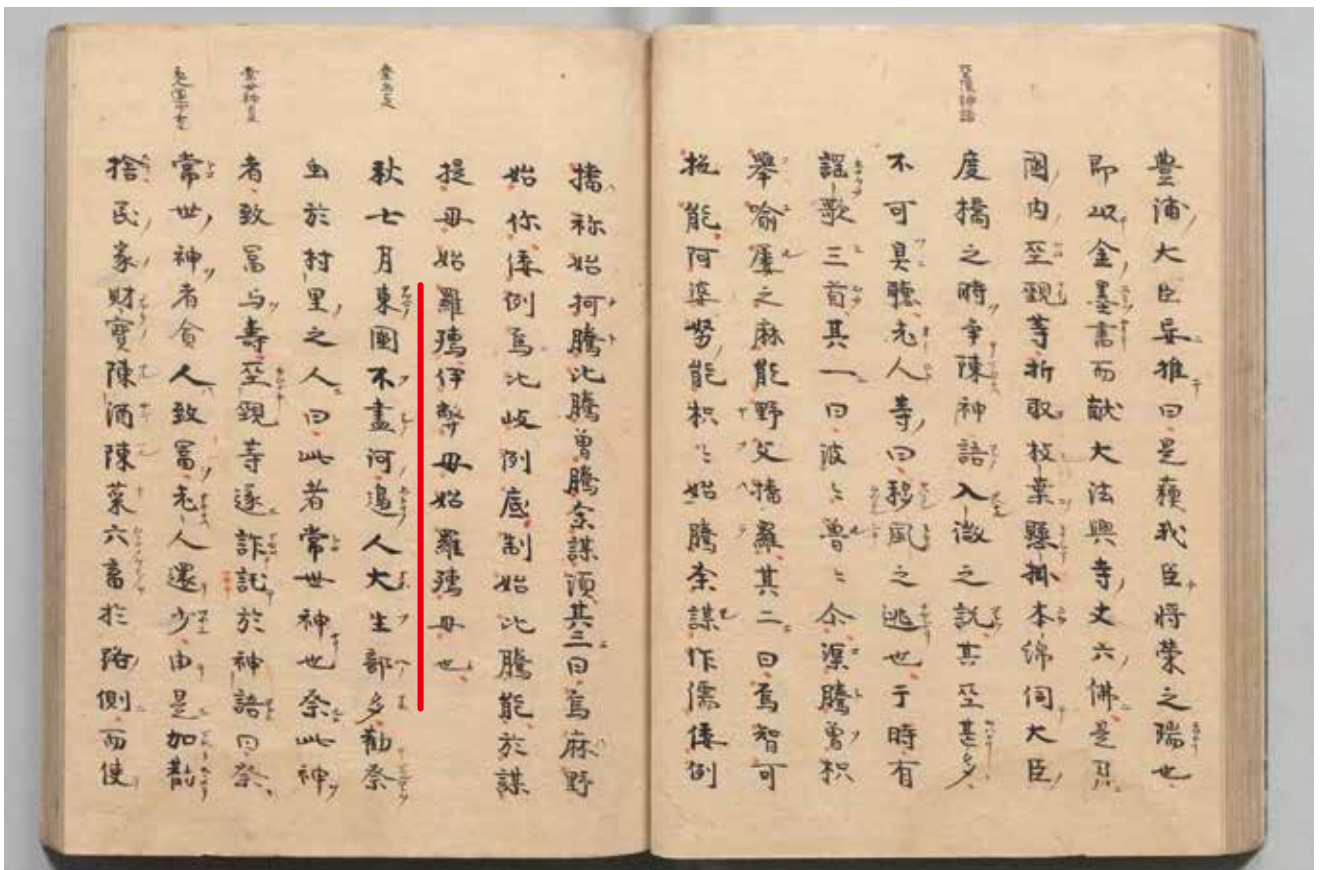 巫覡神語
豊浦大臣妄推曰是蘓我臣將榮之瑞也
即以金墨書而獻大法興寺丈六佛是月
國内巫覡等折取枝葉懸掛木綿伺大臣
度橋之時争陳神語入微之説其巫甚多
不可具聽老人等曰移風之兆也于時有
謡歌三首其一曰波々魯々介渠騰曽枳
舉喩屢之麻能野父播羅其二曰烏智可
拕能阿婆努能枳々始騰余謀作儒倭例
播祢始柯騰比騰曽騰余謀須其三曰烏麻野
始你倭例烏比岐例底制始比騰能於謀
提母始羅孺伊弊母始羅孺母也
秋七月東國不盡河邉人大生部多勸祭
虫於村里之人曰此者常世神也祭此神
者致冨与壽巫覡等遂詐託於神語曰祭
常世神者貧人致冨老人還少由是加勸
捨民家財寶陳酒陳菜六畜於路側而使